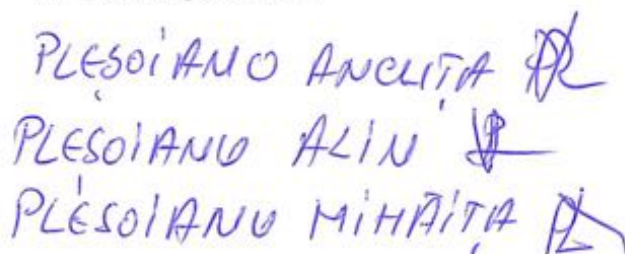 PLEȘOIANO ANCUȚA
PLEȘOIANU ALIN
PLEȘOIANU MIHĂIȚĂ